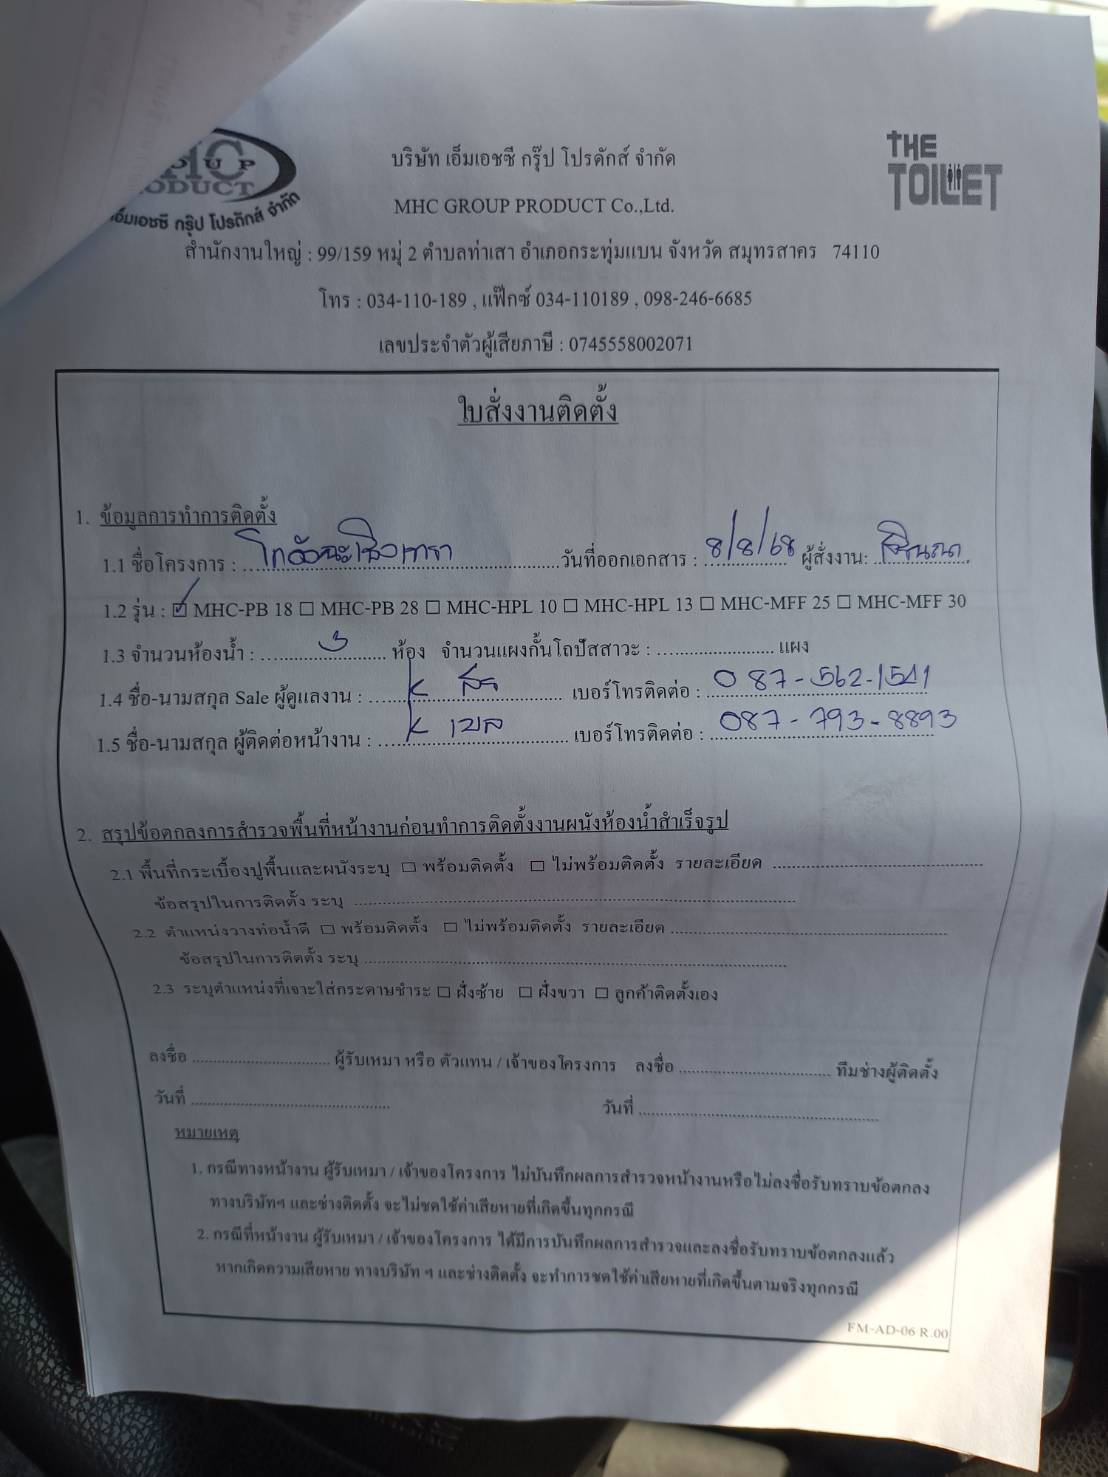 HC
O U P
ODUCT
เอ็มเอชซี กรุ๊ป โปรดักส์ จำกัด
THE
TOILET
บริษัท เอ็มเอชซี กรุ๊ป โปรดักส์ จำกัด
MHC GROUP PRODUCT Co.,Ltd.
สำนักงานใหญ่ : 99/159 หมู่ 2 ตำบลท่าเสา อำเภอกระทุ่มแบน จังหวัด สมุทรสาคร 74110
โทร : 034-110-189 , แฟ๊กซ์ 034-110189 , 098-246-6685
เลขประจำตัวผู้เสียภาษี : 0745558002071
ใบสั่งงานติดตั้ง
1. ข้อมูลการทำการติดตั้ง
1.1 ชื่อโครงการ : โกดังฉะเชิงเทรา วันที่ออกเอกสาร : 8/8/68 ผู้สั่งงาน:
1.2 รุ่น : ☑ MHC-PB 18 ☐ MHC-PB 28 ☐ MHC-HPL 10 ☐ MHC-HPL 13 ☐ MHC-MFF 25 ☐ MHC-MFF 30
1.3 จำนวนห้องน้ำ : 3 ห้อง จำนวนแผงกั้นโถปัสสาวะ : แผง
1.4 ชื่อ-นามสกุล Sale ผู้ดูแลงาน : K เบอร์โทรติดต่อ : 087-562-1541
1.5 ชื่อ-นามสกุล ผู้ติดต่อหน้างาน : K เบอร์โทรติดต่อ : 087-793-8893
2. สรุปข้อตกลงการสำรวจพื้นที่หน้างานก่อนทำการติดตั้งงานผนังห้องน้ำสำเร็จรูป
2.1 พื้นที่กระเบื้องปูพื้นและผนังระบุ ☐ พร้อมติดตั้ง ☐ ไม่พร้อมติดตั้ง รายละเอียด
ข้อสรุปในการติดตั้ง ระบุ
2.2 ตำแหน่งวางท่อน้ำดี ☐ พร้อมติดตั้ง ☐ ไม่พร้อมติดตั้ง รายละเอียด
ข้อสรุปในการติดตั้ง ระบุ
2.3 ระบุตำแหน่งที่เจาะใส่กระดาษชำระ ☐ ฝั่งซ้าย ☐ ฝั่งขวา ☐ ลูกค้าติดตั้งเอง
ลงชื่อ ผู้รับเหมา หรือ ตัวแทน / เจ้าของโครงการ ลงชื่อ ทีมช่างผู้ติดตั้ง
วันที่ วันที่
หมายเหตุ
1. กรณีทางหน้างาน ผู้รับเหมา / เจ้าของโครงการ ไม่บันทึกผลการสำรวจหน้างานหรือไม่ลงชื่อรับทราบข้อตกลง
ทางบริษัทฯ และช่างติดตั้ง จะไม่ชดใช้ค่าเสียหายที่เกิดขึ้นทุกกรณี
2. กรณีที่หน้างาน ผู้รับเหมา / เจ้าของโครงการ ได้มีการบันทึกผลการสำรวจและลงชื่อรับทราบข้อตกลงแล้ว
หากเกิดความเสียหาย ทางบริษัท ฯ และช่างติดตั้ง จะทำการชดใช้ค่าเสียหายที่เกิดขึ้นตามจริงทุกกรณี
FM-AD-06 R.00